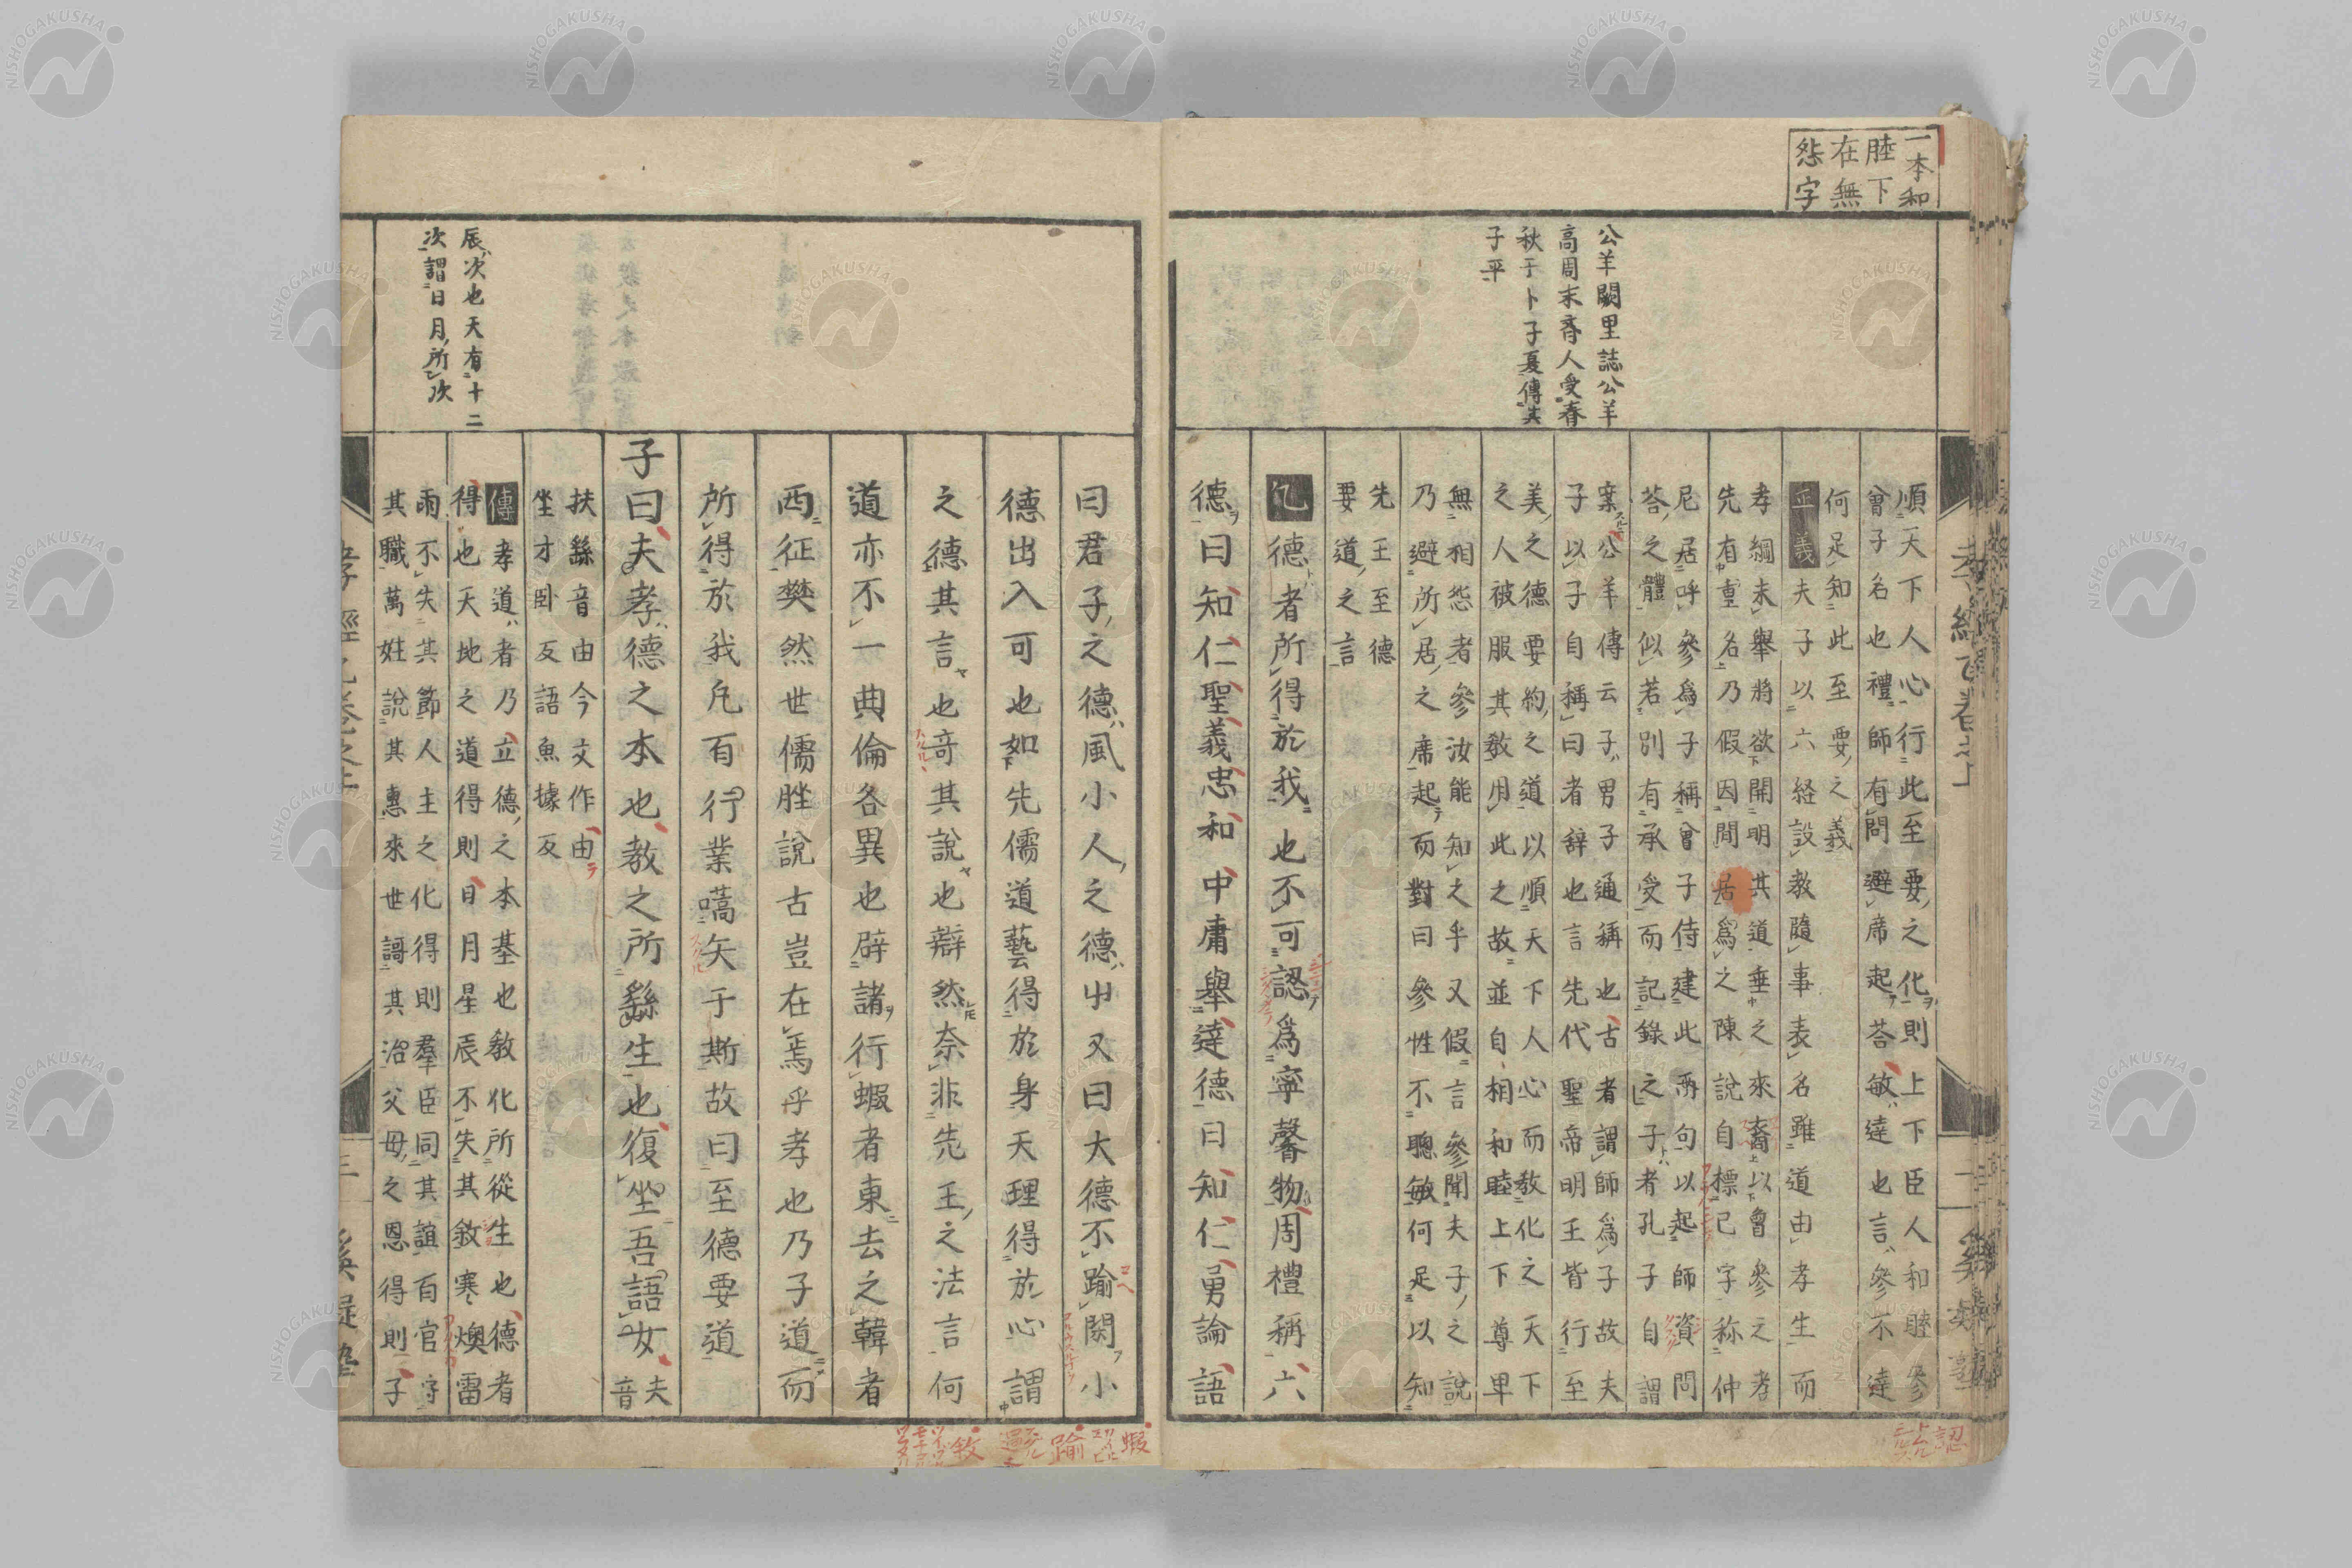 一本和
睦下
在無
怨字
公羊闕里誌公羊
高周末齊人受春
秋于卜子夏傳其
子平
順天下人心行此至要之化則上下臣人和睦參
曾子名也禮師有問避席起荅敏達也言參不達
何足知此至要之義
正義夫子以六経設教隨事表名雖道由孝生而
孝綱未舉將欲開明其道垂之來裔以曾參之孝
先有重名乃假因閒居為之陳說自標己字称仲
尼居呼參為子稱曾子侍建此兩句以起師資問
荅之體似若別有承受而記錄之子者孔子自謂
案公羊傳云子男子通稱也古者謂師為子故夫
子以子自稱曰者辞也言先代聖帝明王皆行至
美之德要約之道以順天下人心而教化之天下
之人被服其教用此之故並自相和睦上下尊卑
無相怨者參汝能知之乎又假言參聞夫子之說
乃避所居之席起而對曰參性不聰敏何足以知
先王至德
要道之言
德者所得於我也不可認為寧馨物周禮稱六
德曰知仁聖義忠和中庸舉達德曰知仁勇論語
孝經
曰君子之德風小人之德屮又曰大德不踰閑小
德出入可也如先儒道藝得於身天理得於心謂
之德其言也竒其說也辯然奈非先王之法言何
道亦不一典倫各異也辟諸行蝦者東去之韓者
西征樊然世儒脞說古豈在焉乎孝也乃子道而
所得於我凡百行業嚆矢于斯故曰至德要道
子曰夫孝德之本也教之所繇生也復坐吾語女夫音
扶繇音由今文作由
坐才卧反語魚據反
傳孝道者乃立德之本基也教化所從生也德者
得也天地之道得則日月星辰不失其敘寒燠雷
雨不失其節人主之化得則羣臣同其誼百官守
其職萬姓說其惠來世謌其治父母之恩得則子
辰次也天有十二
次謂日月所次
蝦
踰
敘
認